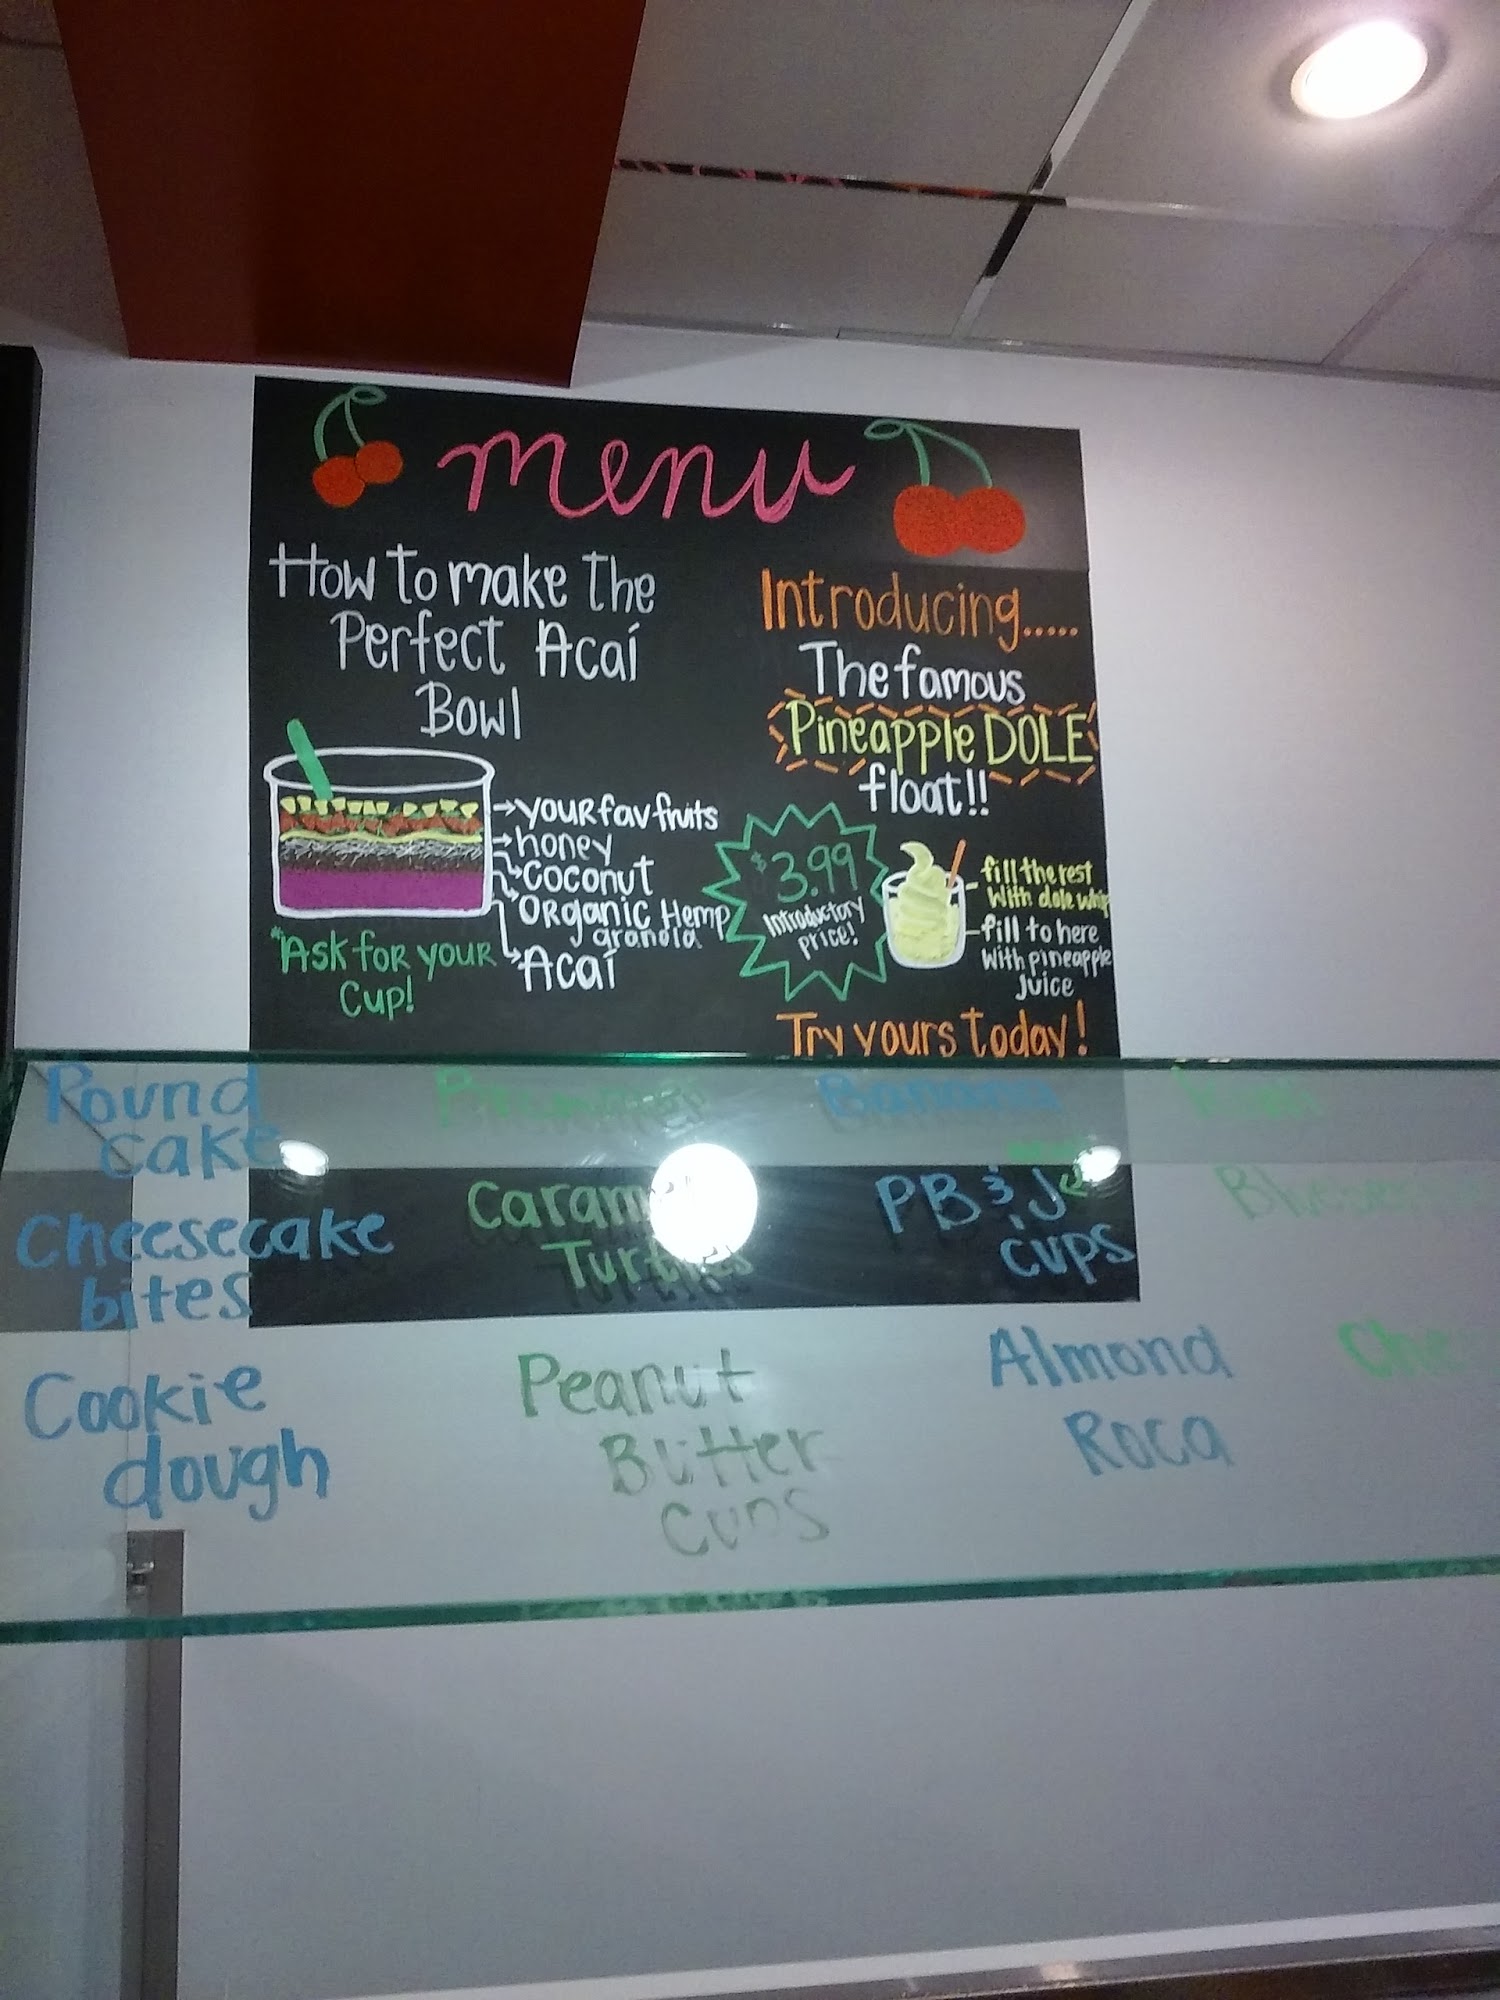 menu
How to make the
Perfect Acaí
Bowl
→ your fav fruits
→ honey
coconut
organic Hemp
granola
Acaí
*Ask for your
cup!
Introducing.....
The famous
Pineapple DOLE
float!!
$3.99
Introductory
price!
fill the rest
with dole whip
fill to here
with pineapple
juice
Try yours today!
Pound
cake
Banana
Cheesecake
bites
Caramel
Turtles
PB & J
cups
Cookie
dough
Peanut
Butter
Cups
Almond
Roca